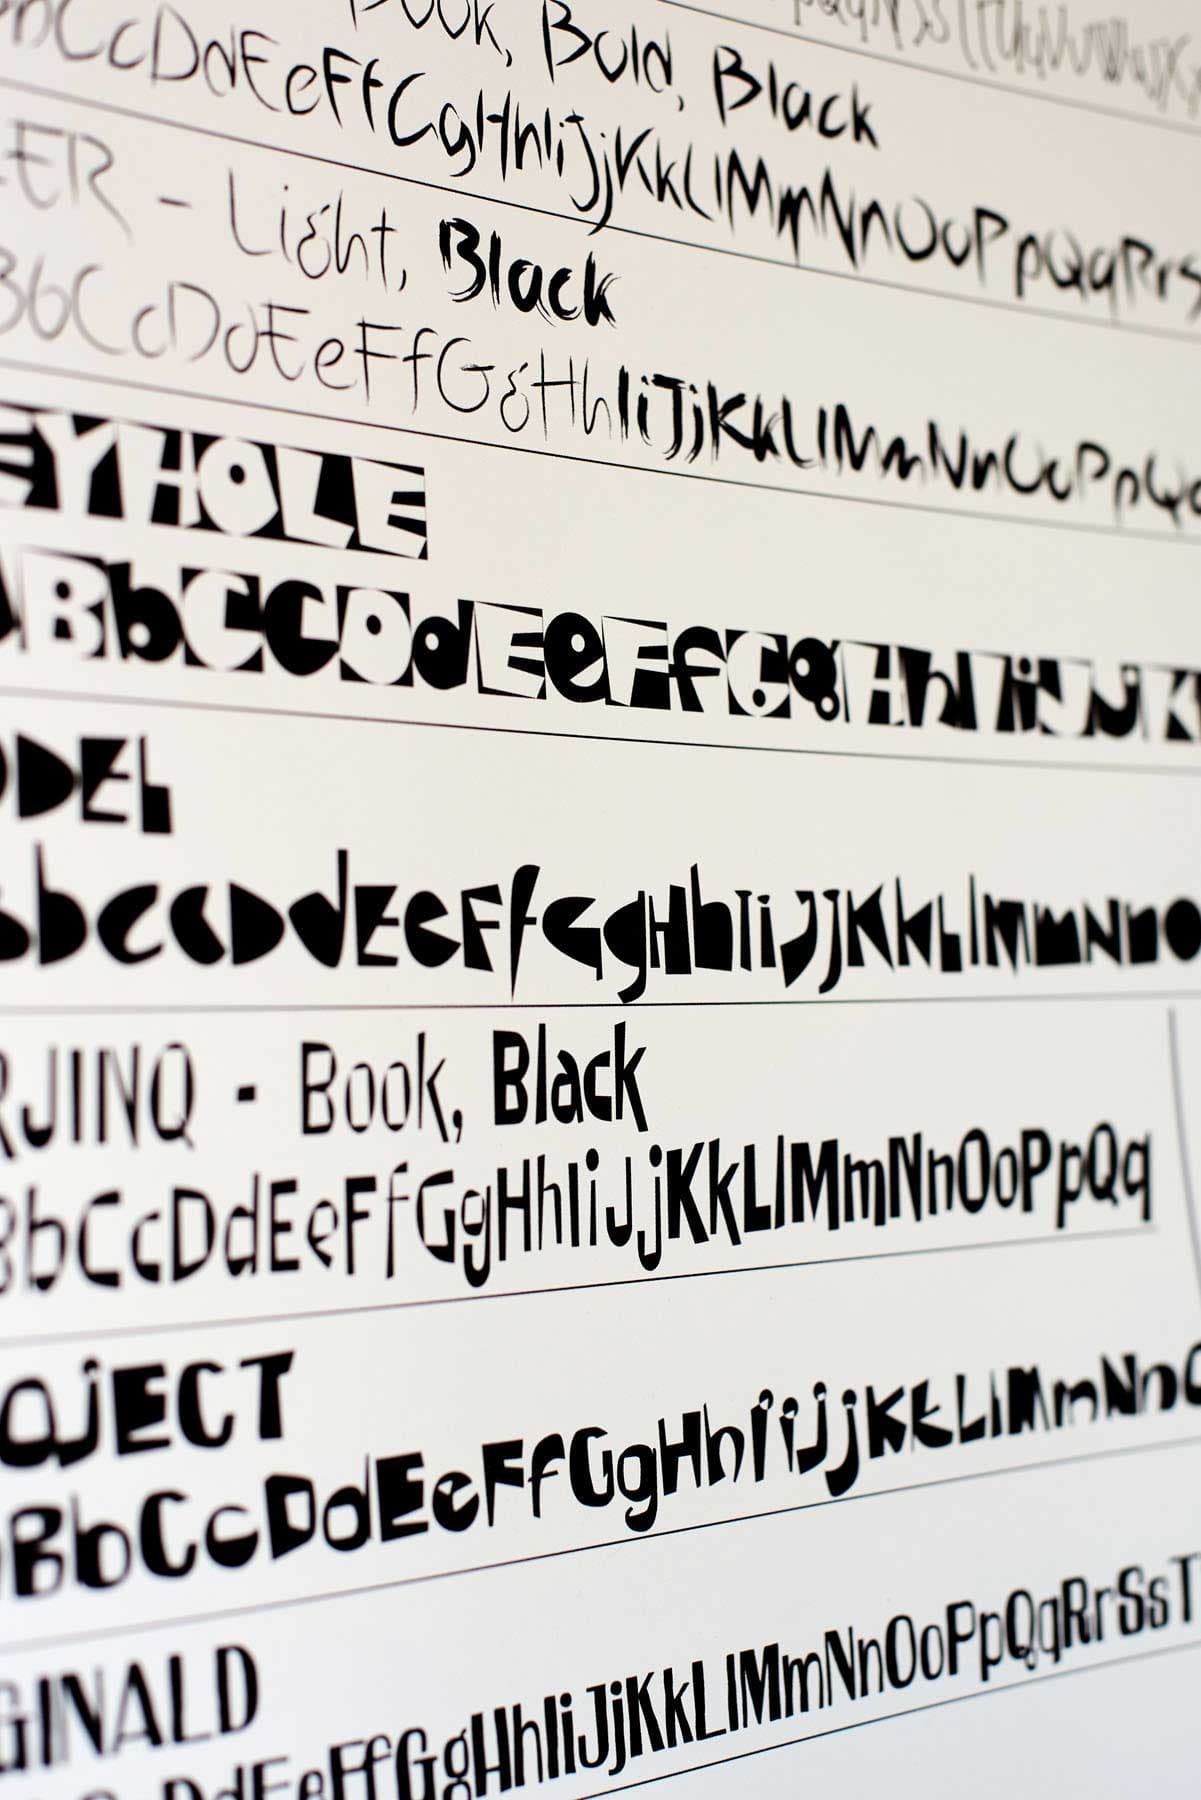 Book, Bold, Black
CcDdEeFfGgHhIiJjKkLlMmNnOoPpQqRrS
ER – Light, Black
BbCcDdEeFfGgHhIiJjKkLlMmNnOoPpQq
EYHOLE
BbCcDdEeFfGgHhIiJjK
ODEL
bCcDdEeFfGgHhIiJjKkLlMmNnO
RJINQ - Book, Black
BbCcDdEeFfGgHhIiJjKkLlMmNnOoPpQq
OJECT
BbCcDdEeFfGgHhIiJjKkLlMmNnO
GINALD
DdEeFfGgHhIiJjKkLlMmNnOoPpQqRrSsT